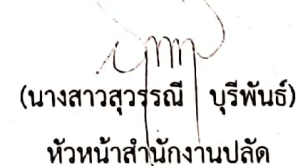 (นางสาวสุวรรณี บุรีพันธ์)
หัวหน้าสำนักงานปลัด